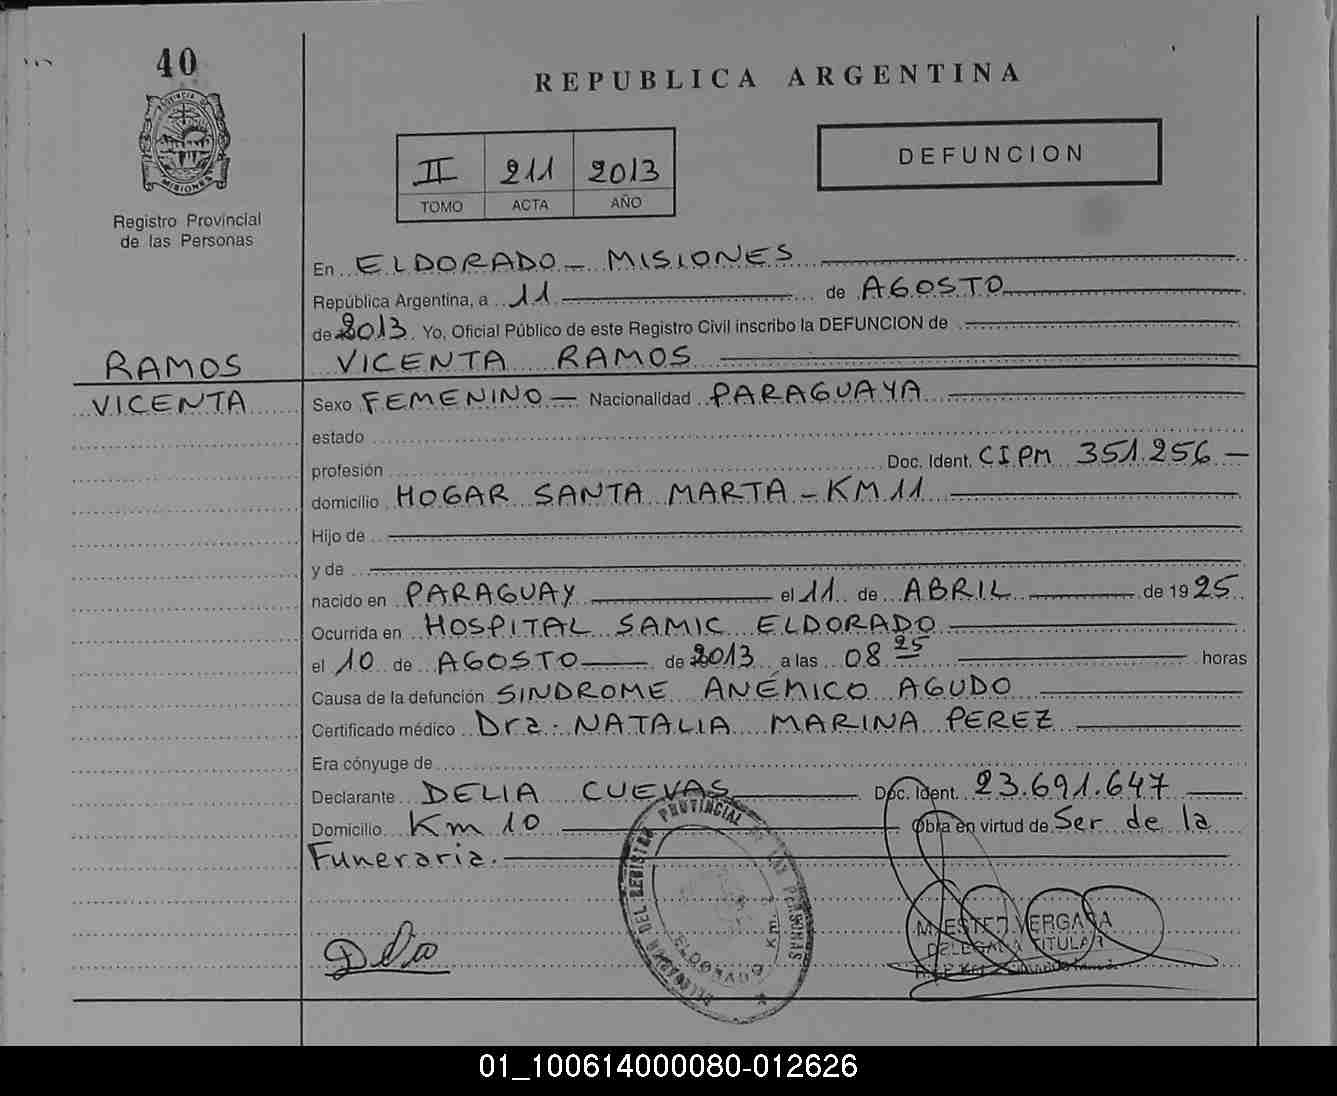 40
PROVINCIA DE
MISIONES
Registro Provincial
de las Personas
REPUBLICA ARGENTINA
II 211 2013
TOMO ACTA AÑO
DEFUNCION
En ELDORADO - MISIONES
República Argentina, a 11 de AGOSTO
de 2013 Yo, Oficial Público de este Registro Civil inscribo la DEFUNCION de
RAMOS VICENTA RAMOS
VICENTA Sexo FEMENINO - Nacionalidad PARAGUAYA
estado
profesión Doc. Ident. CIPM 351.256 -
domicilio HOGAR SANTA MARTA - KM 11
Hijo de
y de
nacido en PARAGUAY el 11 de ABRIL de 1925
Ocurrida en HOSPITAL SAMIC ELDORADO
el 10 de AGOSTO de 2013 a las 08 25 horas
Causa de la defunción SINDROME ANÉMICO AGUDO
Certificado médico Dra. NATALIA MARINA PEREZ
Era cónyuge de
Declarante DELIA CUEVAS Doc. Ident. 23.691.647
Domicilio Km 10 Obra en virtud de Ser de la
Funeraria.
DEL REGISTRO PROVINCIAL DE LAS PERSONAS
ELDORADO Km.
VERGARA
TITULAR
01_100614000080-012626